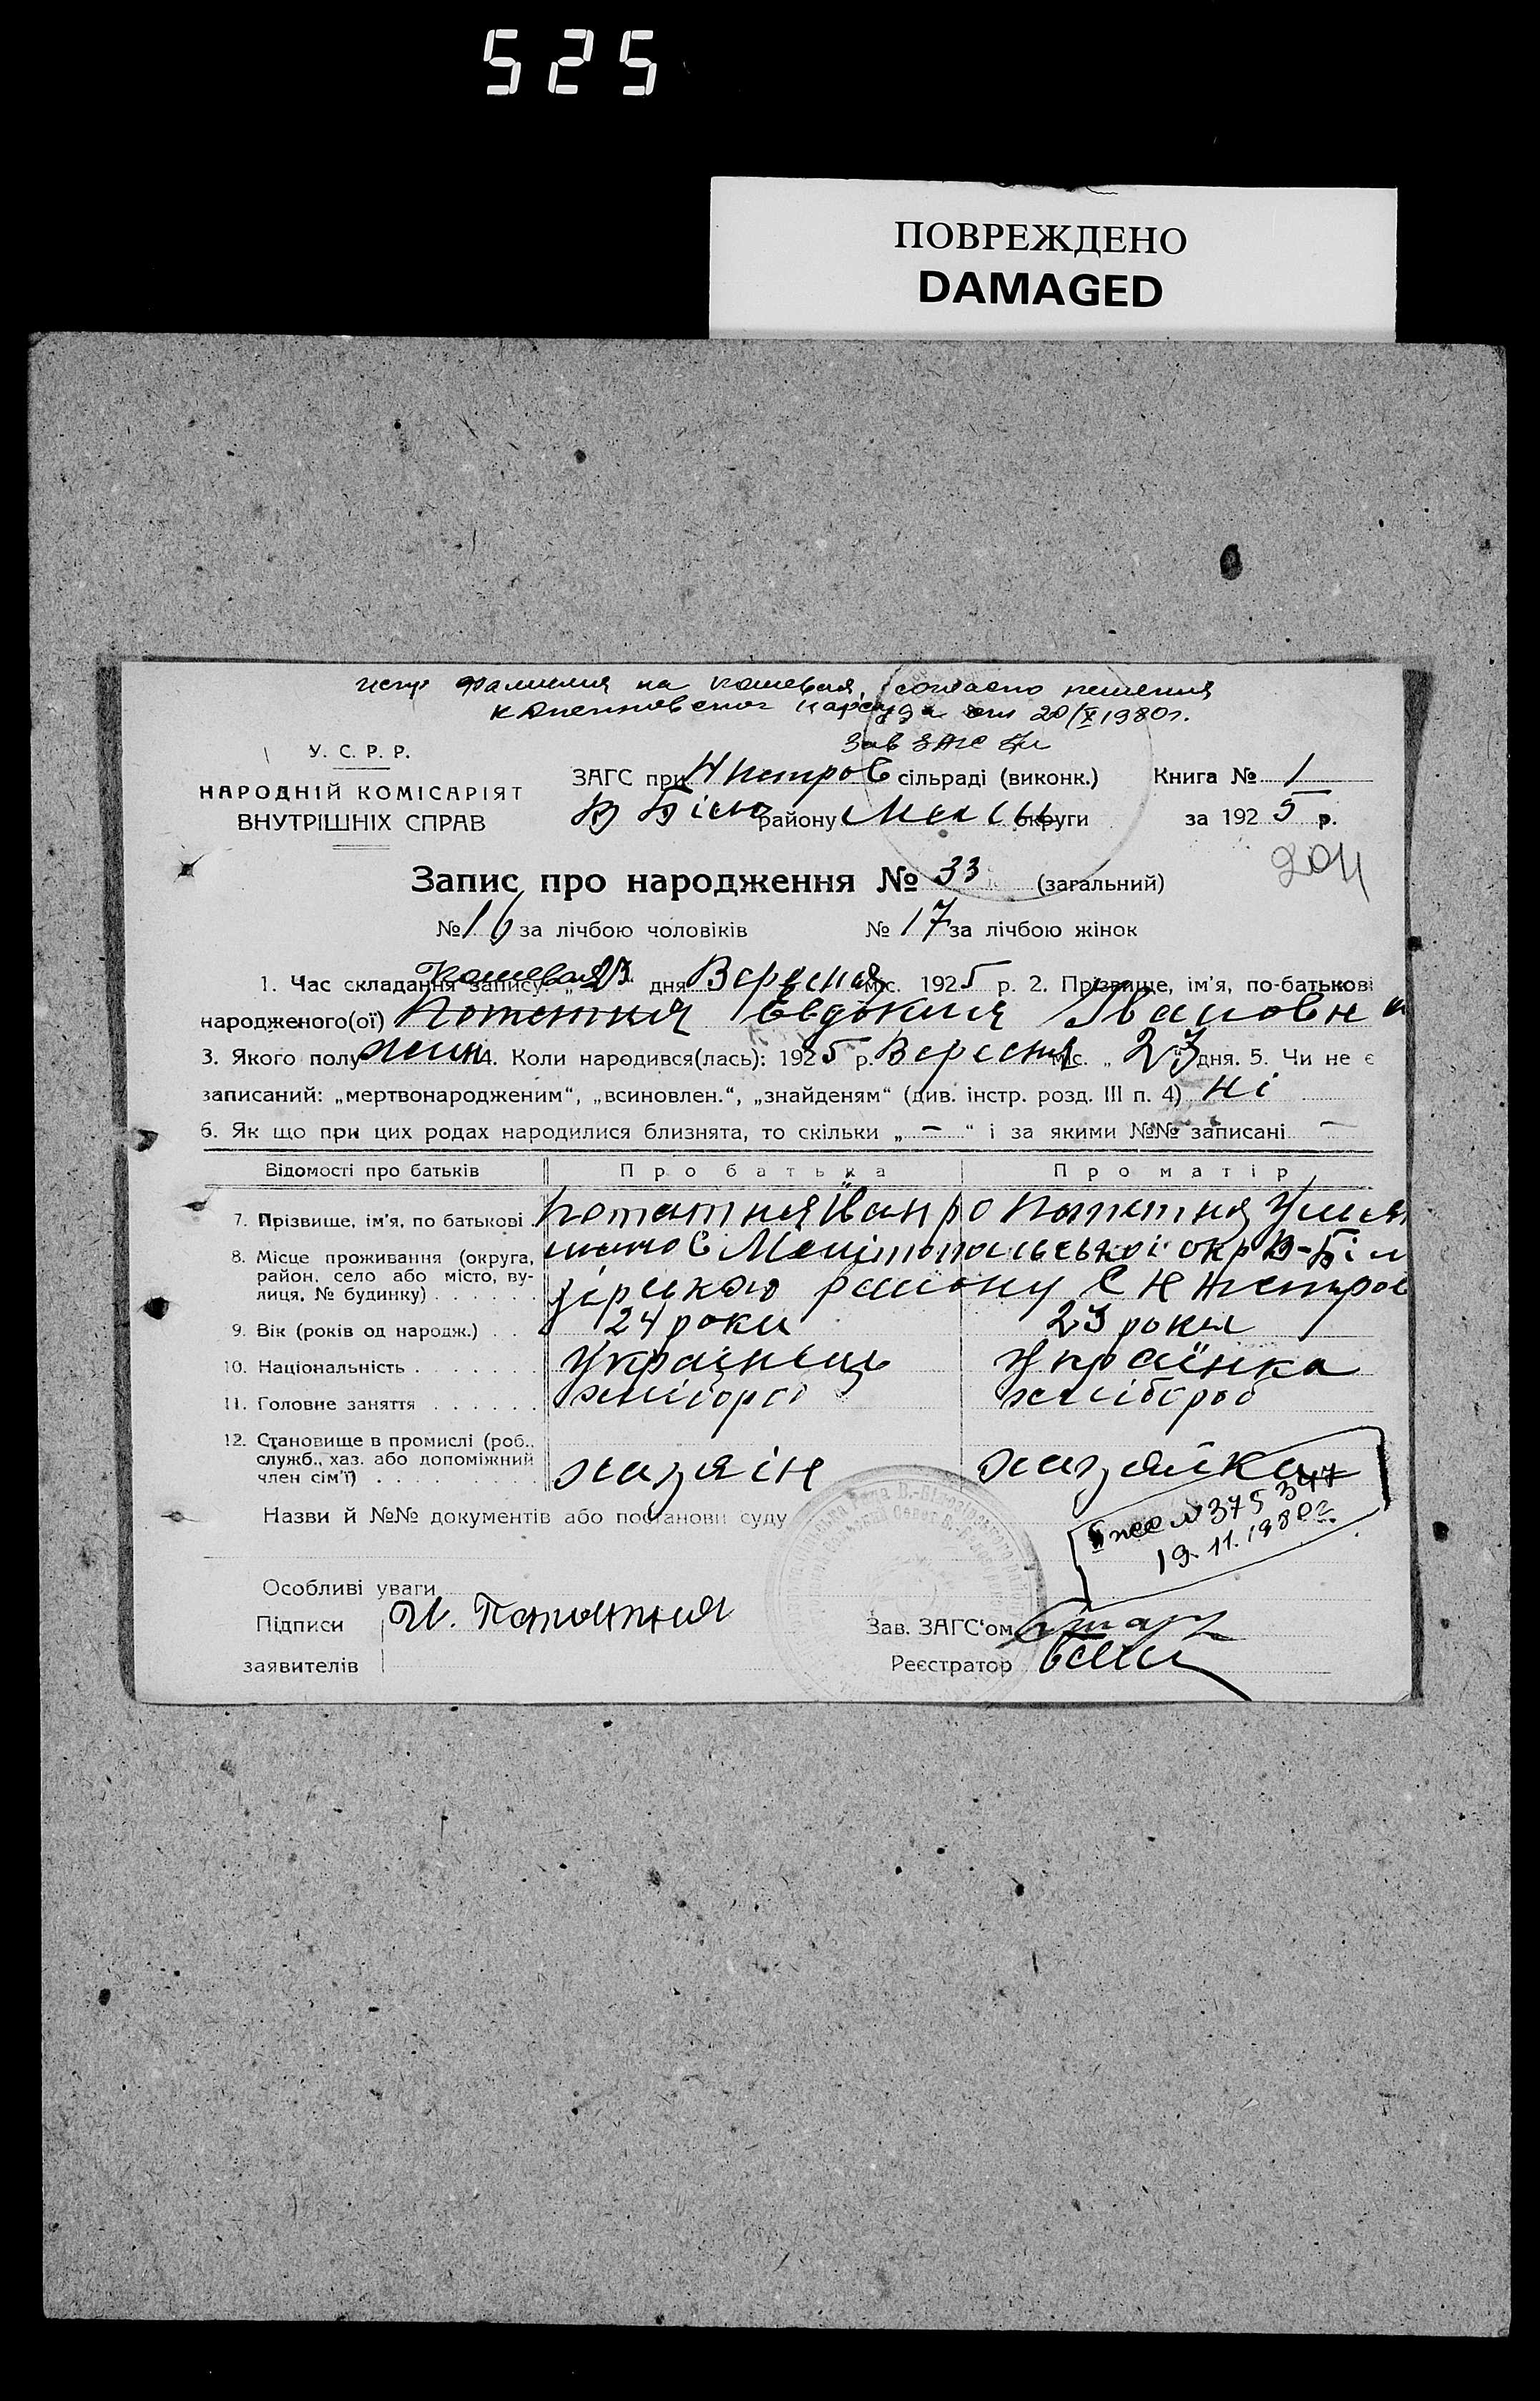 525
ПОВРЕЖДЕНО
DAMAGED
фамилия на Кошевая, согласно решения
нарсуда от 20/X 1980г.
Зав ЗАГС
У. С. Р. Р.
НАРОДНІЙ КОМІСАРІЯТ
ВНУТРІШНІХ СПРАВ
ЗАГС при сільраді (виконк.) Книга № 1
В Біло району Мел округи за 1925 р.
204
Запис про народження № 33 (загальний)
№ 16 за лічбою чоловіків № 17 за лічбою жінок
Кошевая
1. Час складання запису: „23“ дня Вересня міс. 1925 р. 2. Прізвище, ім'я, по-батькові
народженого(ої) Потетня Евдокия Івановна
3. Якого полу жин 4. Коли народився(лась): 1925 р. Вересня міс. „23“ дня. 5. Чи не є
записаний: „мертвонародженим“, „всиновлен.“, „знайденям“ (див. інстр. розд. III п. 4) ні
6. Як що при цих родах народилися близнята, то скільки „ — “ і за якими №№ записані —
Відомості про батьків Про батька Про матір
7. Прізвище, ім'я, по батькові Потетня Іван Потетня
8. Місце проживання (округа, район, село або місто, вулиця, № будинку) Мелітопольської окр В-Біло
зірського району С Н
9. Вік (років од народж.) 24 роки 23 роки
10. Національність Українець Українка
11. Головне заняття хлібороб хлібороб
12. Становище в промислі (роб., служб., хаз. або допоміжний член сім'ї) хазяїн хазяйка
Назви й №№ документів або постанови суду
№ 375347
19.11.1980г.
Особливі уваги
Підписи И. Потетня Зав. ЗАГС'ом
заявителів Реєстратор